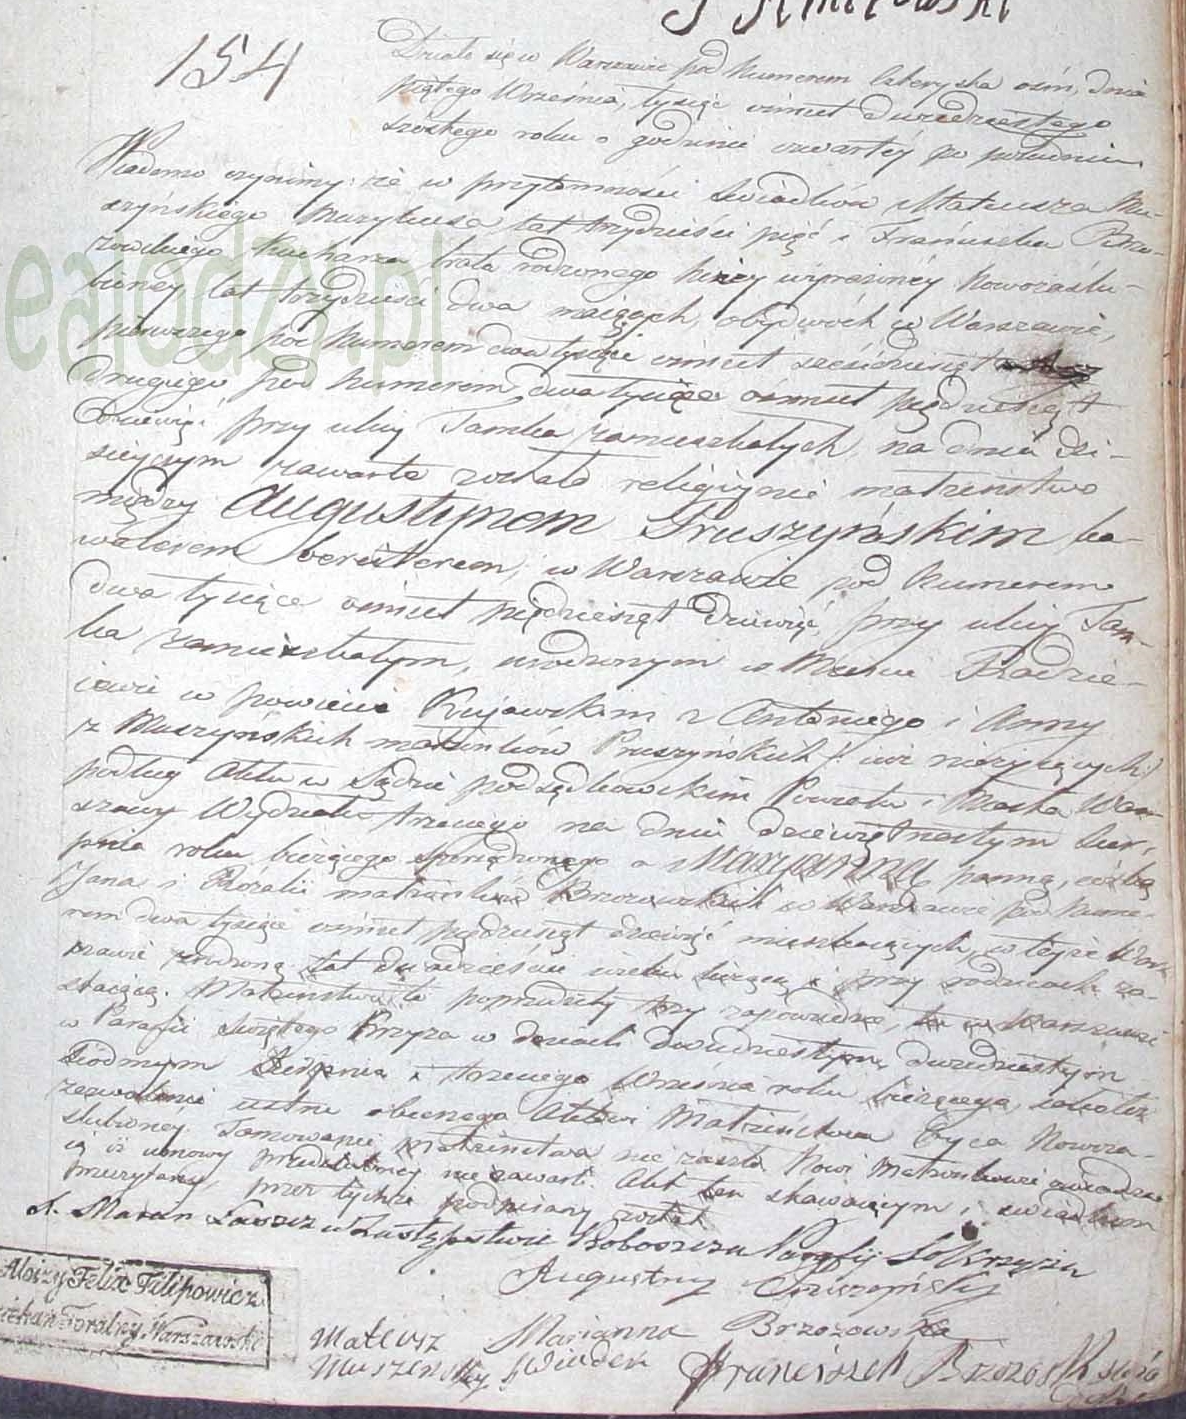 154
Działo się w Warszawie pod Numerem czterysta ośm, dnia
piątego Września, tysiąc ośmset dwudziestego
szóstego roku o godzinie czwartey po południu.
Wiadomo czynimy, że w przytomności Świadków Mateusza Mu-
szyńskiego Muzykusa lat trzydzieści pięć i Franciszka Brzo-
zowskiego Kucharza brata rodzonego niżey wyrażoney Nowozaślu-
bioney, lat trzydzieści dwa maiących, obydwóch w Warszawie,
pierwszego pod Numerem dwa tysiące ośmset sześćdziesiąt
drugiego pod Numerem dwa tysiące ośmset pięćdziesiąt
dziewięć przy ulicy Tamka zamieszkałych, na dniu dzi-
sieyszym zawarte zostało religiynie małżeństwo
między Augustynem Pruszyńskim ka-
walerem bereiterem, w Warszawie pod Numerem
dwa tysiące ośmset pięćdziesiąt dziewięć, przy ulicy Tam-
ka zamieszkałym, urodzonym w Mieście Radzie-
iewie w powiecie Kujawskim z Antoniego i Anny
z Muszyńskich małżonków Pruszyńskich iuż nieżyiących
podług Aktu w Sądzie podsędkowskim Powiatu i Miasta War-
szawy Wydziału trzeciego na dniu dziewiętnastym Sier-
pnia roku bieżącego sporządzonego a Maryanną panną, córką
Jana i Rozalii małżonków Brzozowskich w Warszawie pod Nume-
rem dwa tysiące ośmset pięćdziesiąt dziewięć mieszkaiących, w teyże War-
szawie zrodzoną lat dwadzieścia wieku liczącą i przy rodzicach zo-
staiącą. Małżeństwo to poprzedziły trzy zapowiedzie, w Warszawie
w Parafii Świętego Krzyża w dniach dwudziestym, dwudziestym
siódmym Sierpnia i trzeciego Września roku bieżącego, iakoteż
zezwolenie ustne obecnego Aktowi Małżeństwa Oyca Nowoza-
ślubioney. Tamowanie małżeństwa nie zaszło. Nowi małżonkowie oświadcza-
ią iż umowy przedślubney nie zawarli. Akt ten stawaiącym i świadkom
przeczytany, przez tychże podpisany został
X. Marcin w Zastępstwie Proboszcza Parafij S. Krzyża
Augustyn Pruszyński
Marianna Brzozowska
Mateusz Muszeński Świadek Franciszek Brzozoski
Aloizy Felix Filipowicz
Dziekan Foralny Warszawski
ealodz.pl